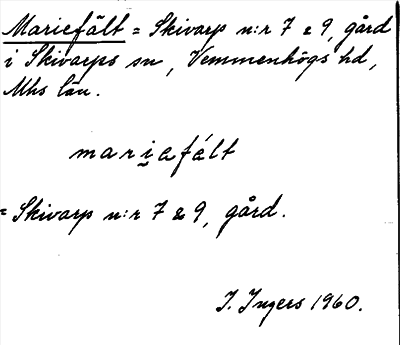 Mariefält = Skivarp n:r 7 & 9, gård
i Skivarps sn, Vemmenhögs hd,
Mhs län.
mari̯afált
= Skivarp n:r 7 & 9, gård.
I. Ingers 1960.